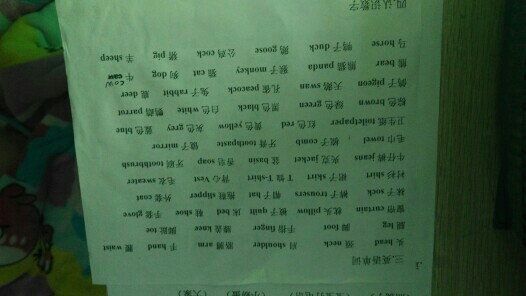 (大象)
三.英语单词
头 head 颈 neck 肩 shoulder 胳膊 arm 手 hand 腰 waist
腿 leg 脚 foot 手指 finger 膝盖 knee 脚趾 toe
窗帘 curtain 枕头 pillow 被子 quilt 床 bed 鞋 shoe 手套 glove
袜子 sock 裤子 trousers 帽子 hat 拖鞋 slipper 外套 coat
衬衫 shirt 裙子 skirt T恤 T-shirt 背心 Vest 毛衣 sweater
牛仔裤 jeans 夹克 jacket 盆 basin 香皂 soap 牙刷 toothbrush
毛巾 towel 梳子 comb 牙膏 toothpaste 镜子 mirror
卫生纸 toiletpaper 红色 red 黄色 yellow 灰色 grey 蓝色 blue
棕色 brown 绿色 green 黑色 black 白色 white 鹦鹉 parrot
鸽子 pigeon 天鹅 swan 孔雀 peacock 兔子 rabbit 鹿 deer
熊 bear 熊猫 panda 猴子 monkey 猫 cat 狗 dog 牛 cow
马 horse 鸭子 duck 鹅 goose 公鸡 cock 猪 pig 羊 sheep
四.认识数字